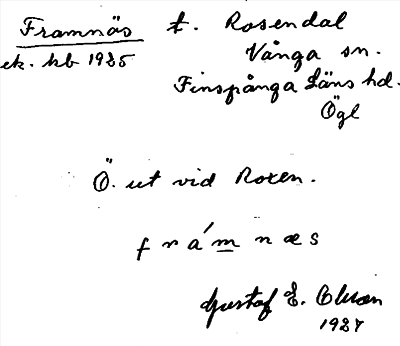 Framnäs t. Rosendal
ek. kb 1935 Vånga sn.
Finspånga Läns hd.
Ögl
Ö. ut vid Roxen.
f r á m n æ s
Gustaf E. Olson
1927